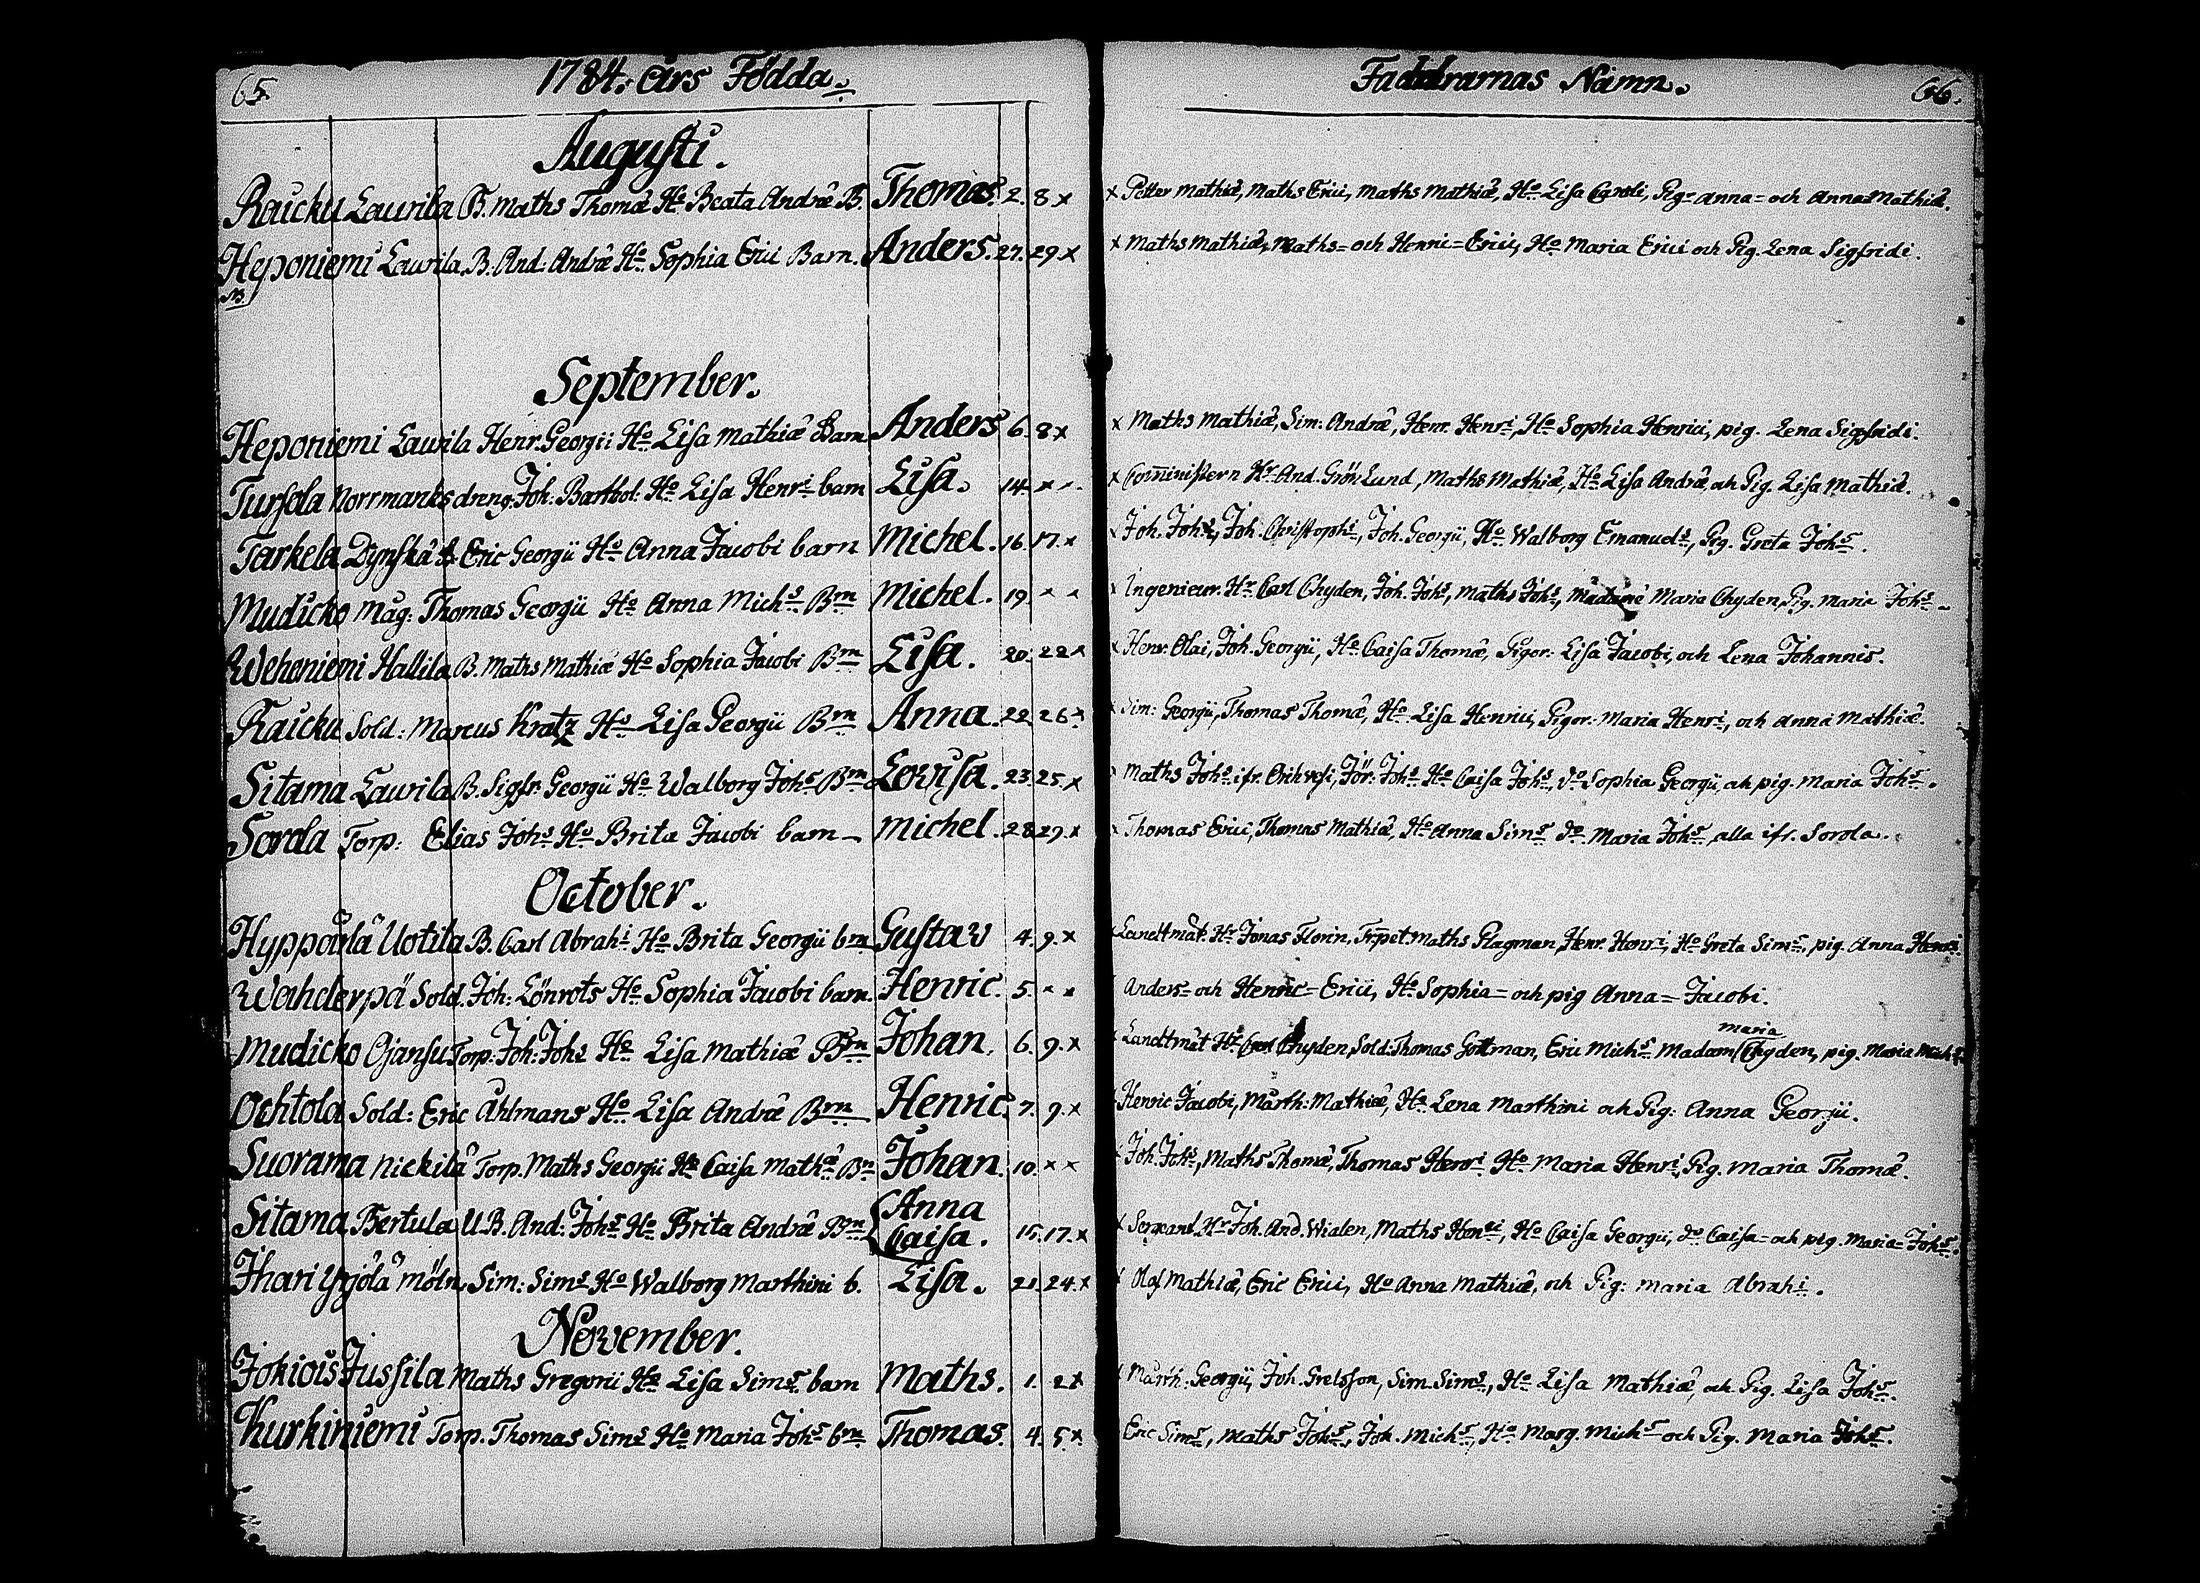 65.
1784. års Födda.
Augusti.
Raucku Laurila B. Maths Thomæ Ho Beata Andræ B. Thomas. 2. 8 x
Heponiemi Laurila B. And: Andræ Ho Sophia Erici Barn. Anders. 27. 29 x
September.
Heponiemi Laurila Henr. Georgii Ho Lisa Mathiæ Barn Anders 6. 8 x
Tursola Norrmanks dreng. Joh: Barthol: Ho Lisa Henri barn Lisa. 14. x
Tarkela Eric Georgii Ho Anna Jacobi barn Michel. 16. 17. x
Mudicko Mag: Thomas Georgii Ho Anna Michs Bm Michel. 19. x x
Wehoniemi Hallila B. Maths Mathiæ Ho Sophia Jacobi Bm Lisa. 20. 22 x
Raucku Sold: Marcus Kratz Ho Lisa Georgii Bm Anna. 22. 26 x
Sitama Laurila B. Sigfr. Georgii Ho Walborg Johs Bm Lovisa. 23. 25. x
Sorola Torp: Elias Johs Ho Brita Jacobi barn Michel. 28. 29. x
October.
Hyppöilä Uotila B. Carl Abrahi Ho Brita Georgii bm Gustav 4. 9. x
Wahderpä Sold. Joh: Lönrots Ho Sophia Jacobi barn. Henric. 5. x x
Mudicko Ojansu Torp: Joh: Johs Ho Lisa Mathiæ Bm Johan. 6. 9. x
Ochtola Sold: Eric Åhlmans Ho Lisa Andræ Bm Henric. 7. 9. x
Suorama Nickilä Torp. Maths Georgii Ho Caisa Mathæ Bm Johan. 10. x x
Sitama Bertula U.B. And: Johs Ho Brita Andræ Bm Anna
Caisa. 15. 17. x
Ihari Yrjölä möln. Sim: Sims Ho Walborg Marthini b. Lisa. 21. 24. x
November.
Jokiois Jussila Maths Gregorii Ho Lisa Sims barn Maths. 1. 2 x
Kurkiniemi Torp. Thomas Sims Ho Maria Johs bm Thomas. 4. 5. x
Faddrarnas Namn. 66.
x Petter Mathiæ, Maths Erici, Maths Mathiæ, Ho Lisa Caroli, Pig= Anna= och Anna Mathiæ.
x Maths Mathiæ, Maths= och Henric= Erici, Ho Maria Erici och Pig. Lena Sigfridi.
x Maths Mathiæ, Sim: Andræ, Henr. Henri, Ho Sophia Henrici, pig. Lena Sigfridi.
x Comministern Hr And. Grönlund, Maths Mathiæ, Ho Lisa Andræ, och Pig. Lisa Mathiæ.
x Joh. Johs, Joh. Christophi, Joh. Georgii, Ho Walborg Emanuels, Pig. Greta Johs.
x Ingenieur Hr Carl Chyden, Joh. Johs, Maths Johs, Madame Maria Chyden, Pig. Maria Johs
x Henr. Olai, Joh. Georgii, Ho Caisa Thomæ, Pigor: Lisa Jacobi, och Lena Johannis.
x Sim: Georgii, Thomas Thomæ, Ho Lisa Henrici, Pigor: Maria Henri, och Anna Mathiæ.
x Maths Johs ifr. Orihvesi, Jör: Johs Ho Caisa Johs, do Sophia Georgii, och pig. Maria Johs.
x Thomas Erici, Thomas Mathiæ, Ho Anna Sims do Maria Johs, alla ifr. Sorola.
Landtmät. Hr Jonas Florin, Trpet. Maths Plagman, Henr. Henri, Ho Greta Sims, pig. Anna Henri
Anders= och Henric= Erici, Ho Sophia= och pig Anna= Jacobi.
x Landtmät Hr Carl Chyden, Sold. Thomas Gottman, Eric Michs Madam Maria Chyden, pig. Maria Michs
Henric Jacobi, Marth: Mathiæ, Ho Lena Marthini och Pig: Anna Georgii.
x Joh. Johs, Maths Thomæ, Thomas Henri Ho Maria Henri, Pig. Maria Thomæ.
x Sergeant Hr Joh. And. Wialen, Maths Henri, Ho Caisa Georgii, do Caisa= och pig. Maria= Johs.
Olof Mathiæ, Eric Erici, Ho Anna Mathiæ, och Pig: Maria Abrahi.
Marth: Georgii, Joh. Grelsson, Sim. Sims, Ho Lisa Mathiæ, och Pig. Lisa Johs.
Eric Sims, Maths Johs, Joh. Michs, Ho Marg. Michs och Pig. Maria Johs.